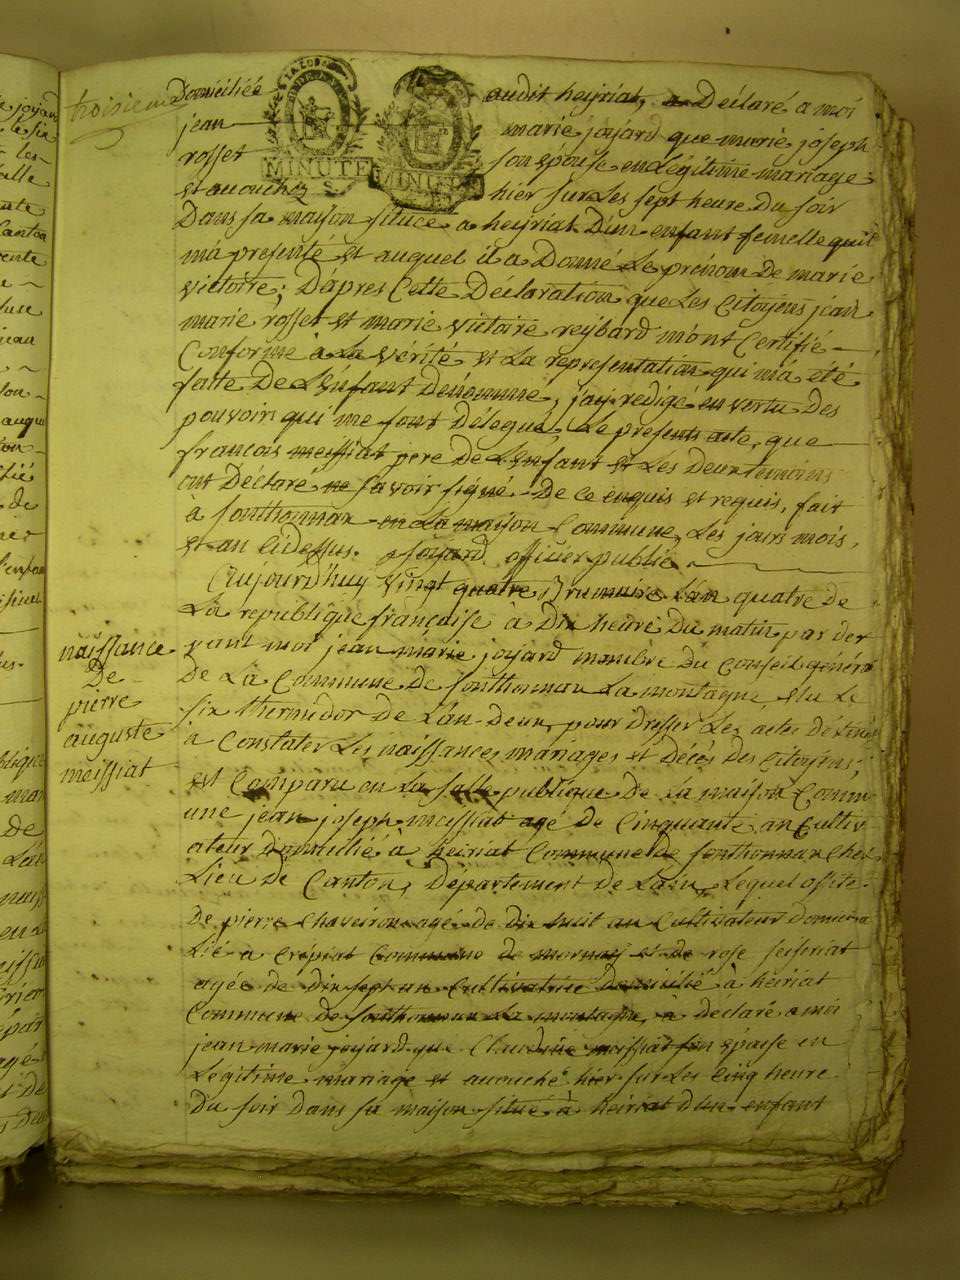 troisieme
Domiciliée audit heyriat, a Déclaré a moi
jean marie joyard que marie joseph
rosset son épouse en Légitime mariage
Et acouchez hier sur Les sept heure Du soir
MINUTE MINUTE
Dans sa maison située a heyriat D'un enfant femelle quil
m'a presenté Et auquel il a Donné Le prénom De marie
victoire; D'apres Cette Declaration que Les Citoyens jean
marie rosset Et marie victoire reybard m'ont Certifié
Conforme a La Vérité Et La representation qui m'a été
faite De L'Enfant Dénommé, j'ay redigé en vertu Des
pouvoirs qui me sont Délegué Le présents acte, que
francois meissiat pere De L'Enfant Et Les Deux temoins
ont Déclaré ne savoir signé De ce enquis et requis, fait
à sonthonnax en La maison Commune, Les jours mois,
Et an Cidessus. joyard officier public
naissance
De
pierre
auguste
meissiat
Aujourd'huy vingt quatre Brumaire L'an quatre de
La republique française à Dix heure Du matin par der
vant moi jean marie joyard membre Du Conseil général
De La Commune De sonthonnax La montagne, élu Le
six thermidor De L'an Deux, pour Dresser Les actes Déstinés
à Constater Les naissances mariages et Décés Des Citoyens;
Est Comparu en La salle publique De La maison Comm
une jean joseph meissiat agé De Cinquante an Cultiv
ateur Domicilié à heiriat Commune De sonthonnax Chef
Lieu De Canton, Département De L'ain, Lequel assité
De pierre Chaveiron agé De Dix huit an Cultivateur domici
Lié a Crépiat Commune de mornay et De rose
agée de Dix sept an Cultivatrice Domicilié à heiriat
Commune De sonthonnax La montagne, à declaré a moi
jean marie joyard que Claudine meissiat son épouse en
Légitime mariage et acouché hier sur Les Cinq heure
Du soir Dans sa maison situé à heiriat d'un enfant